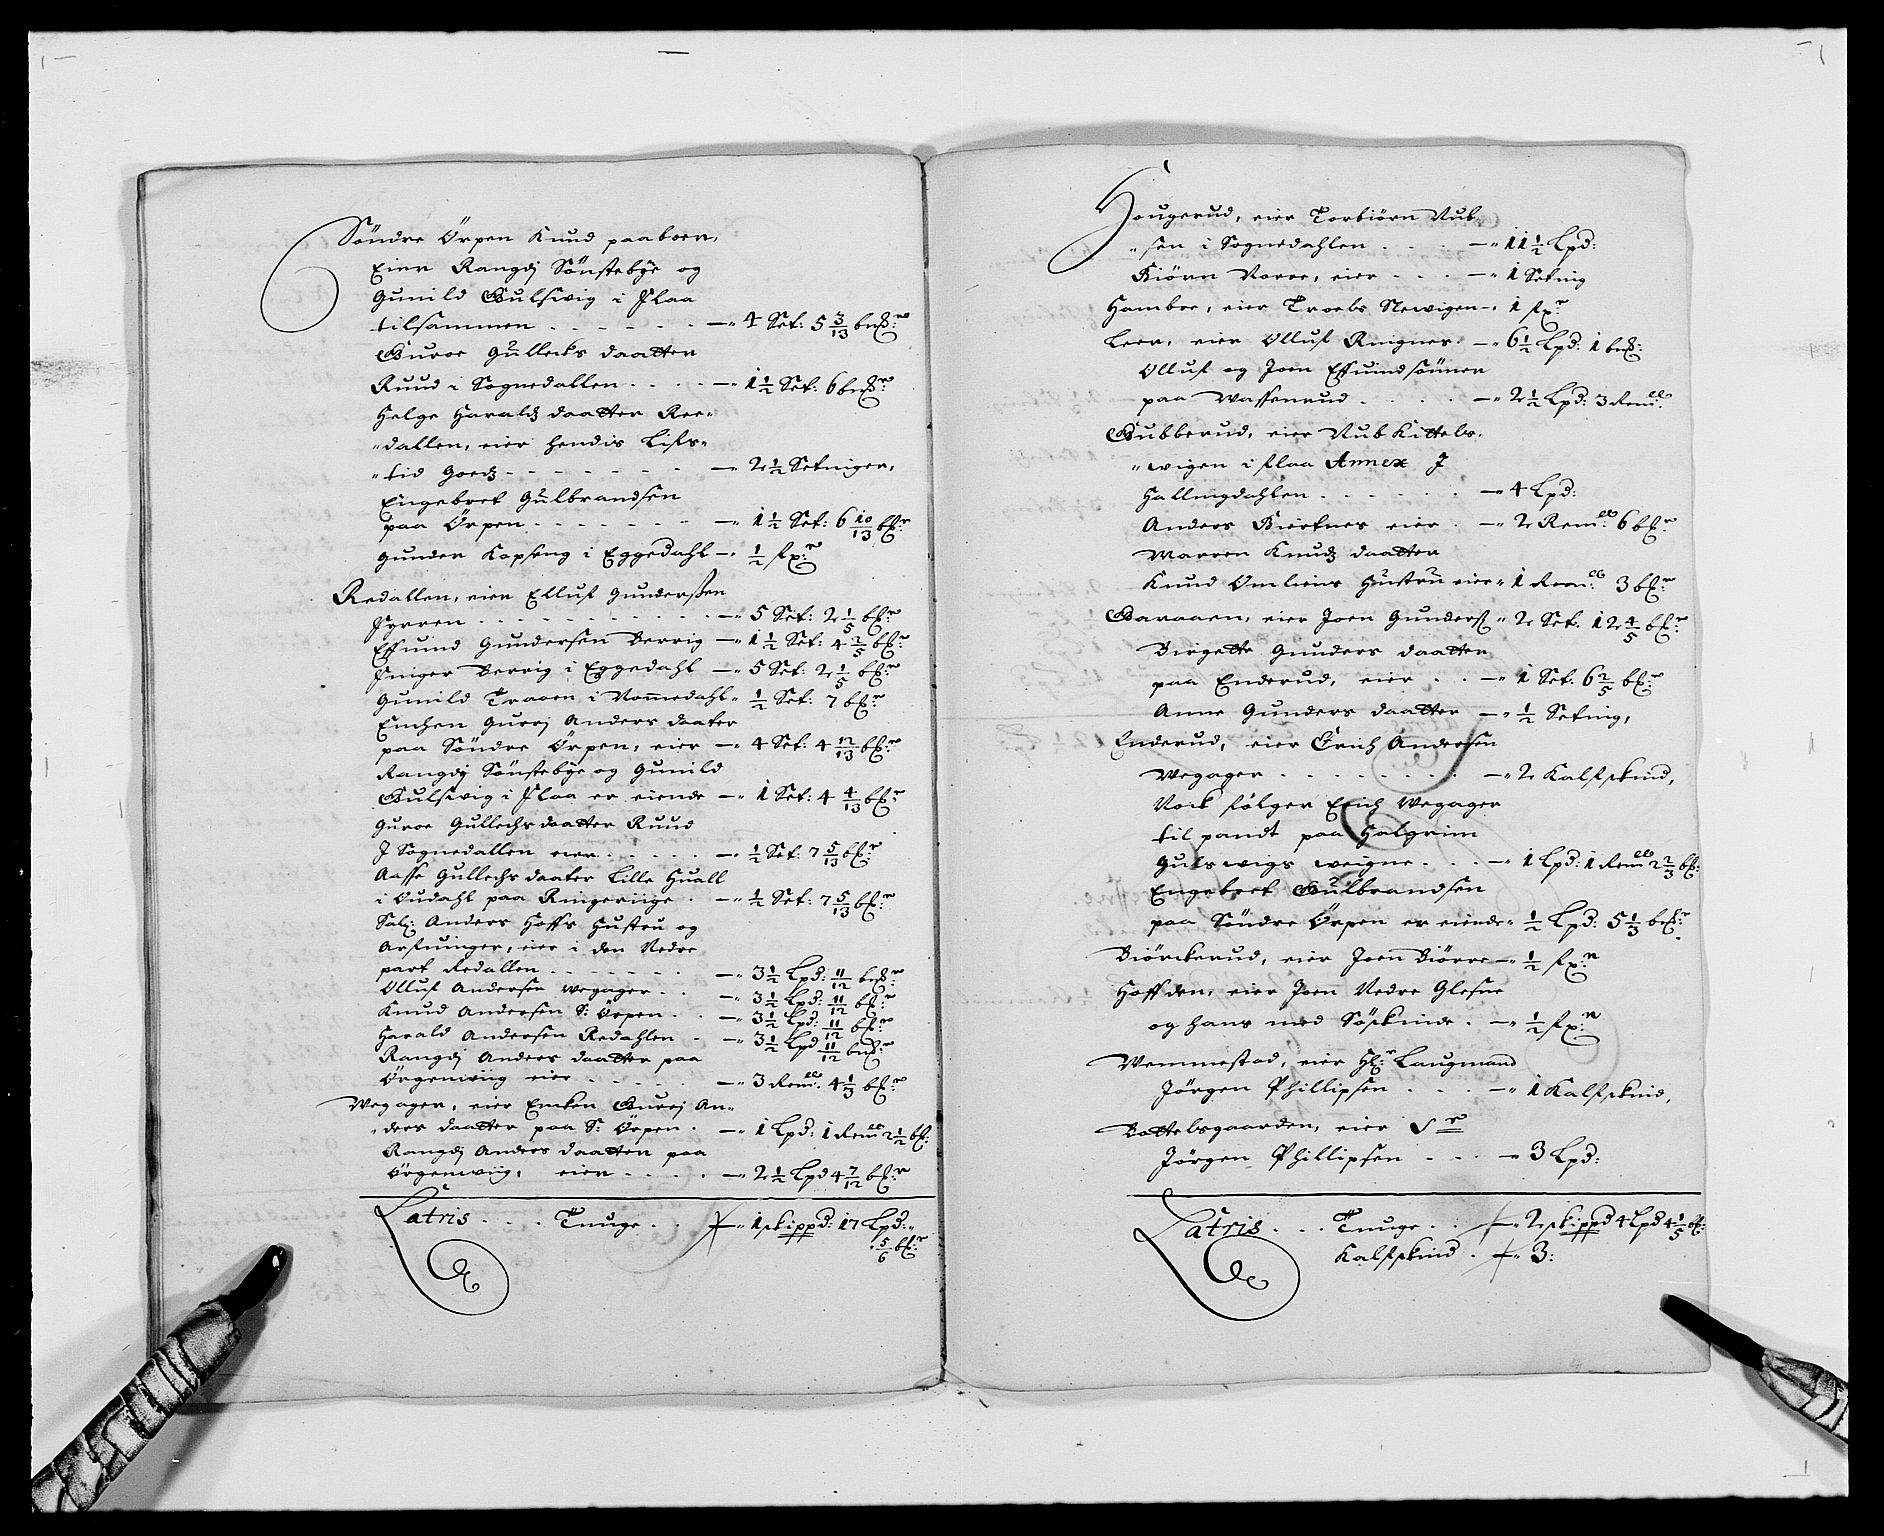 Söndre Örpen Knud paaboer,
Eier Rangdj Sönstebye og
Gunild Gulsvig i Flaa
tilsammen . . . . . . —" 4 Set: 5 3/13 bß:r
Guroe Gullecks daatter
Ruud i Sognedallen . . . . —" 1 1/2 Set: 6 bß:r
Helge Haraldz daatter Ree-
"dallen, eier hendis Lifs-
"tid Goedz . . . . . . . — 2 1/2 Setniger,
Engebret Gulbrandsen
paa Örpen . . . . . . . —" 1 1/2 Set: 6 10/13 bß:r
Gunder Kopseng i Eggedahl —" 1/2 fx:r
Redallen, eier Elluf Gunderssen
Fyrren . . . . . . . . . . . —" 5 Set: 2 1/5 bß:r
Essuind Gundersen Berrig —" 1 1/2 Set: 4 2/5 bß:r
Finger Berrig i Eggedahl —" 5 Set: 2 1/5 bß:r
Gunild Traaen i Nommedahl " 1/2 Set: 7 bß:r
Enchen Gurrj Anders daater
paa Söndre Örpen, eier —" 4 Set: 4 12/13 bß:r
Rangdj Sönstebye og Gunild
Gulsvig i Flaa er eiende —" 1 Set: 4 4/13 bß:r
Guroe Gullechs daatter Ruud
J Sognedallen eier . . . . —" 1/2 Set: 7 5/13 bß:r
Aasse Gullechs daater Lille Huall
i Oudahl paa Ringeriige . —" 1/2 Set: 7 5/13 bß:r
Sal: Anders Hoffs Hustru og
Arfuinger, eier i den Nedre
part Redallen . . . . . . . —" 3 1/2 Lpd: 11/12 bß:r
Olluf Andersen Wegager . . —" 3 1/2 Lpd: 11/12 bß:r
Knud Andersen S: Örpen . . —" 3 1/2 Lpd: 11/12 bß:r
Harald Andersen Redahlen . —" 3 1/2 Lpd 11/12 bß:r
Rangdj Anders daatter paa
Örgenwiig eier . . . . . —" 3 Rem: 4 1/3 bß:r
Wegager, eier Encken Gurrj An-
"ders daatter paa S: Örpen . —" 1 Lpd: 1 Rem 2 1/2 bß:
Rangdj Anders daatter paa
Örgenwiig, eier . . . . . —" 2 1/2 Lpd 4 7/12 bß:r
Latris . . . Tunge . . —" 1 skippd: 17 Lpd:
5/6 bß:r
Hougerud, eier Torbiörn Nub-
"sen i Sognedahlen . . . . —" 11 1/2 Lpd:
Biörn Norre, eier . . . —" 1 Setnig
Hamboe, eier Troels Newigen —" 1 fx:r
Leer, eier Olluf Ringnes . —" 6 1/2 Lpd: 1 bß:
Olluf og Joen Essuindsönner
paa Wassenrud . . . . . —" 2 1/2 Lpd: 3 Rem:
Gubberud, eier Nub Kittels-
"wigen i Flaa Annex J
Hallingdahlen . . . . . . — 4 Lpd:
Anders Biertnes eier . —" 2 Rem: 6 bß:r
Marren Knudz daatter
Knud Omliens Hustru eier " 1 Rem: 3 bß:r
Garaaen, eier Joen Gunders " 2 Set: 12 4/5 bß:r
Birgette Gunders daatter
paa Enderud, eier . . —" 1 Set. 6 2/5 bß:r
Anne Gunders daatter —" 1/2 Setnig,
Enderud, eier Erich Andersen
Wegager . . . . . . . . —" 2 Kalfskind,
Nock fölger Erich Wegager
til pandt paa Halgrim
Gulswigs weigne . . . —" 1 Lpd: 1 Rem 2 2/3 bß:
Engebret Gulbrandsen
paa Söndre Örpen er eiende " 1/2 Lpd: 5 1/3 bß:r
Biörckerud, eier Joen Biörre —" 1/2 fx:r
Hoffden, eier Joen Nedre Glesne
og hans med Söskinde . —" 1/2 fx:r
Wemmestad, eier Hr: Laugmand
Jörgen Phillipsen . . . —" 1 Kalfskind,
Bottelsgaarden, eier Sr
Jörgen Phillipsen . . . —" 3 Lpd:
Latris . . . Tunge . . —" 2 skippd 4 Lpd 4 1/5 bß:
Kalfskind . —" 3: